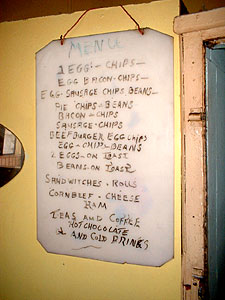 MENU
2 EGG - CHIPS -
EGG BACON - CHIPS -
EGG - SAUSAGE CHIPS BEANS -
PIE CHIPS - BEANS
BACON - CHIPS
SAUSAGE - CHIPS
BEEFBURGER EGG CHIPS
EGG - CHIPS - BEANS
2 EGGS - ON TOAST
BEANS - ON TOAST
SANDWITCHES - ROLLS
CORNBEEF - CHEESE
HAM
TEAS AND COFFEE
HOT CHOCOLATE
& AND COLD DRINKS